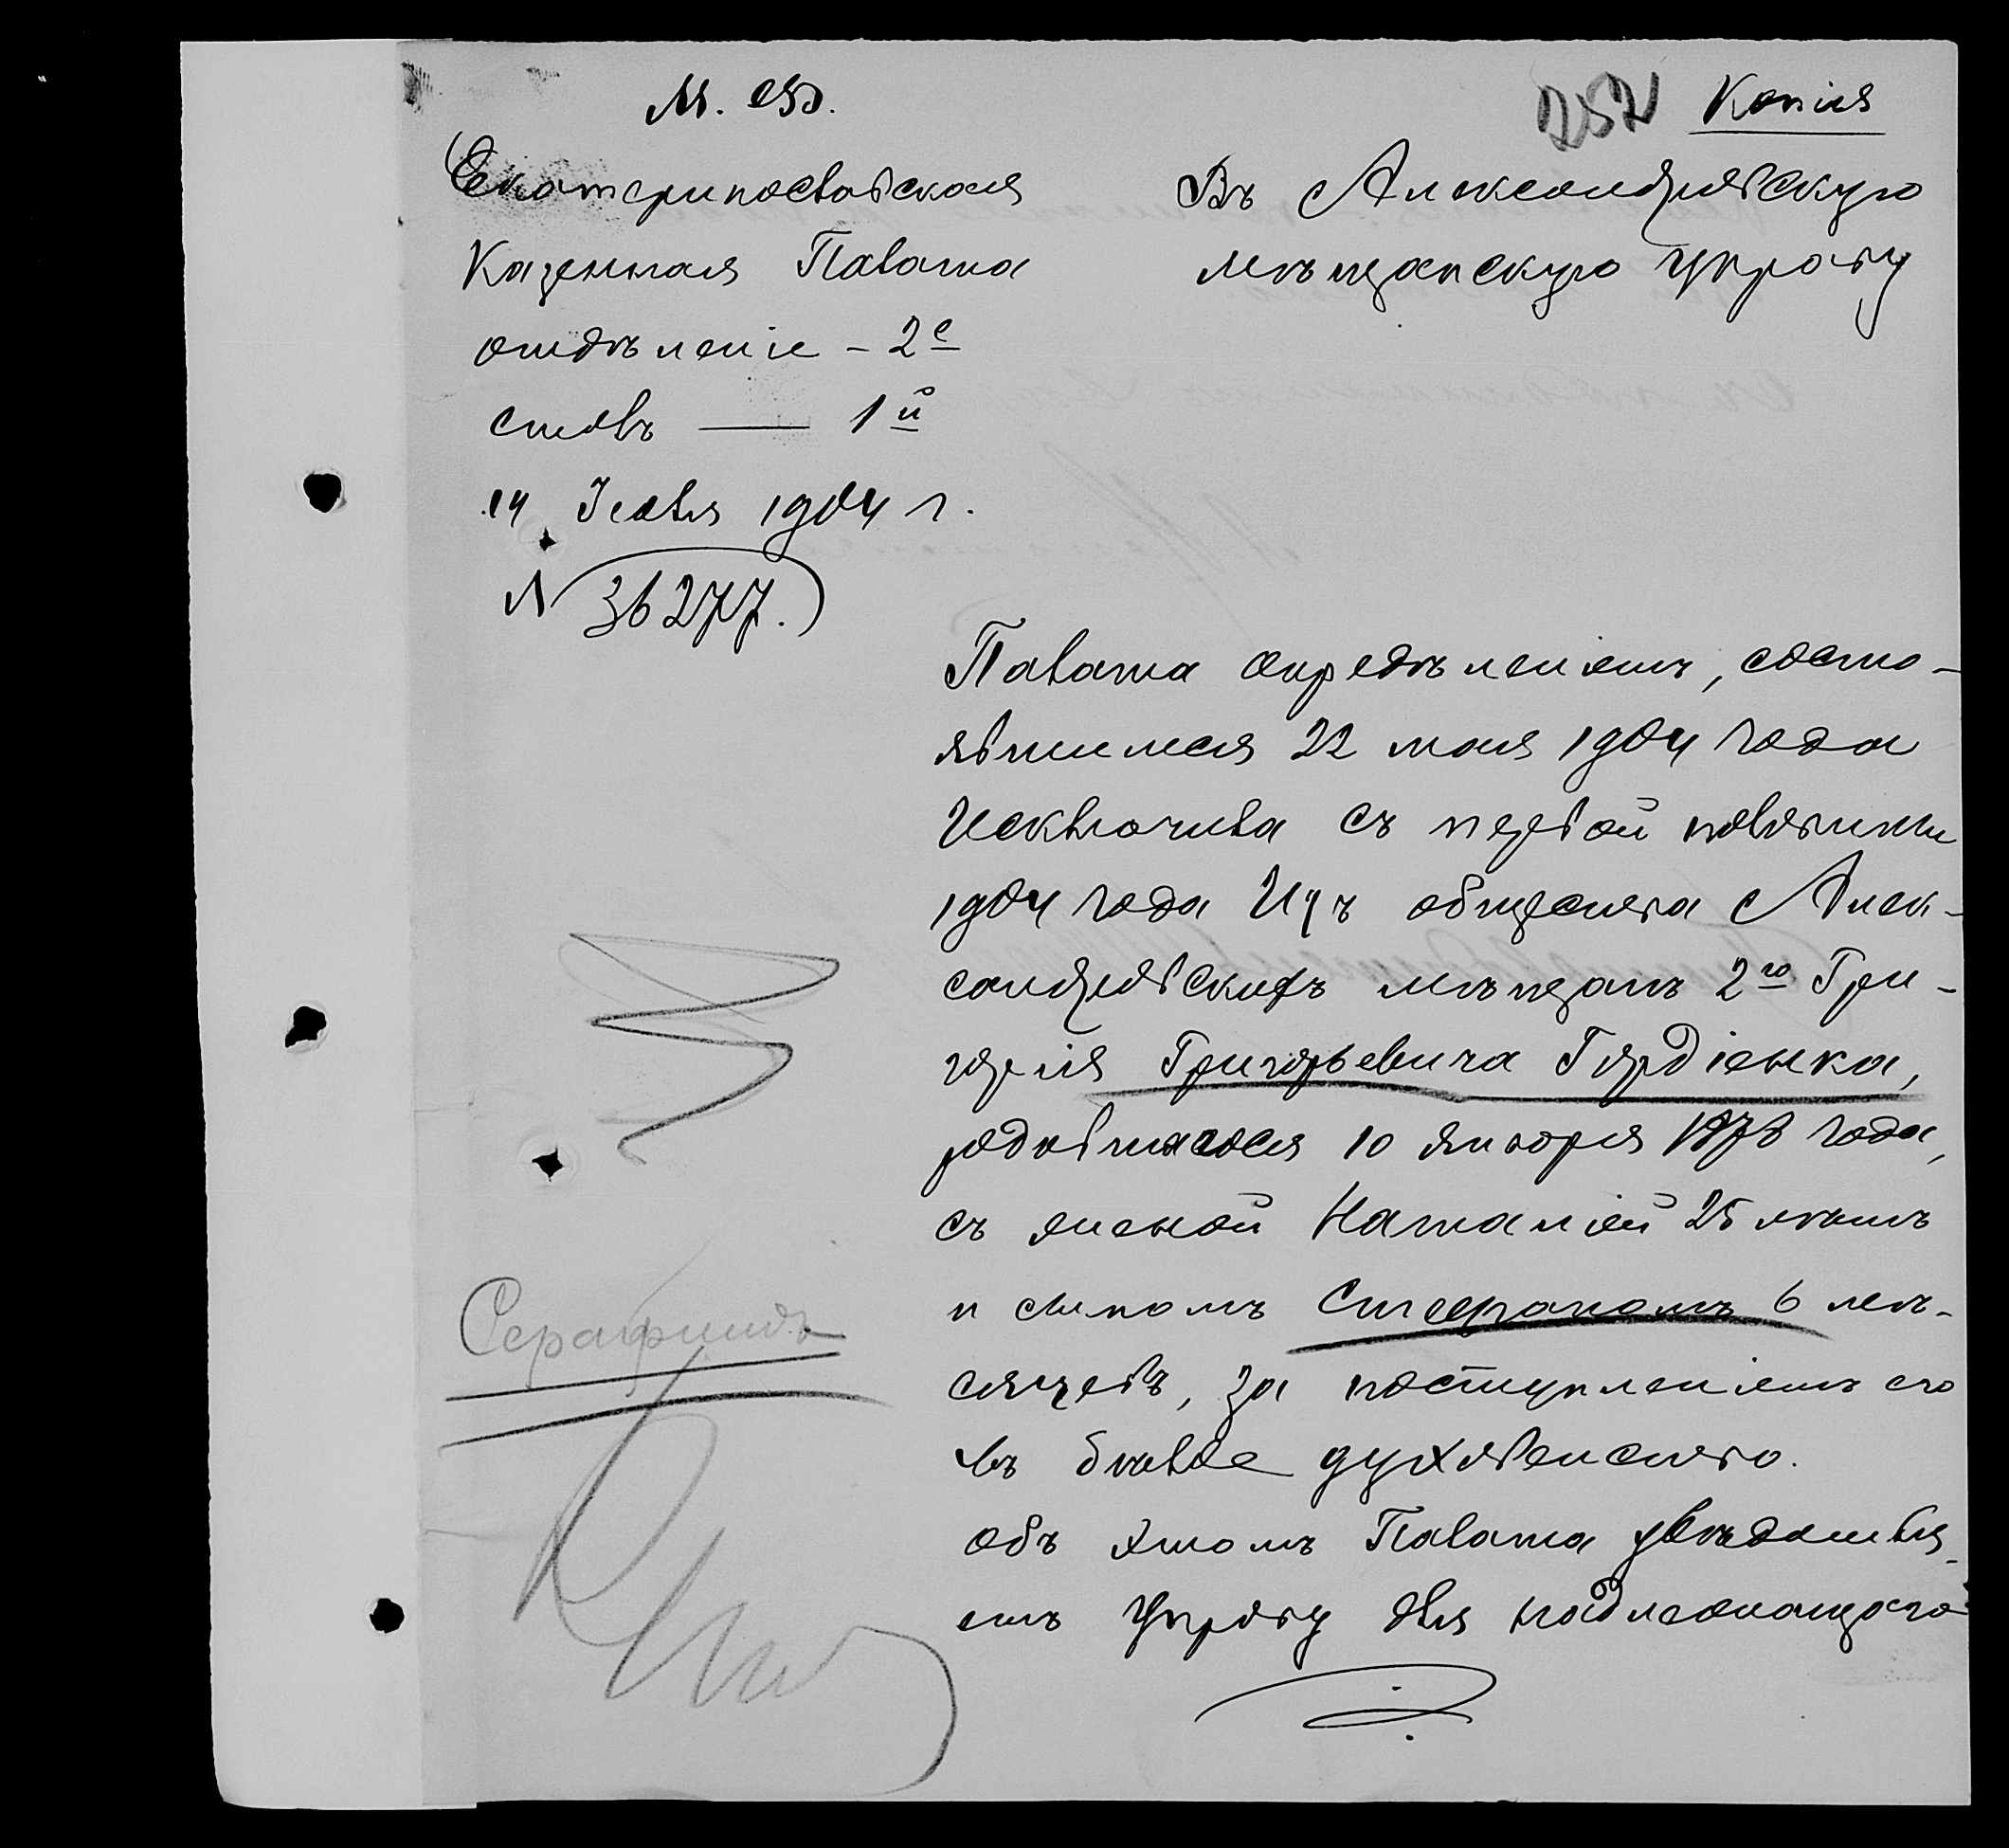 М. Ф.
Екатеринославская
Казенная Палата
отдѣленіе – 2е
столъ — 1й
14 Іюля 1904 г.
№ 36277.
252 Копія
Въ Александровскую
мѣщанскую управу
Палата опредѣленіемъ, состо-
явшимся 22 мая 1904 года
Исключила съ первой половины
1904 года Изъ общества Алек-
сандровскихъ мѣщанъ 2го Гри-
горія Григорьевича Гордіенка,
родившагося 10 января 1878 года,
съ женой Наталіей 25 лѣтъ
и сыномъ Стефаномъ 6 мѣ-
сяцевъ, за поступленіемъ его
въ бѣлое духовенство.
Объ этомъ Палата увѣдомля-
етъ Управу для надлежащаго
Серафимъ